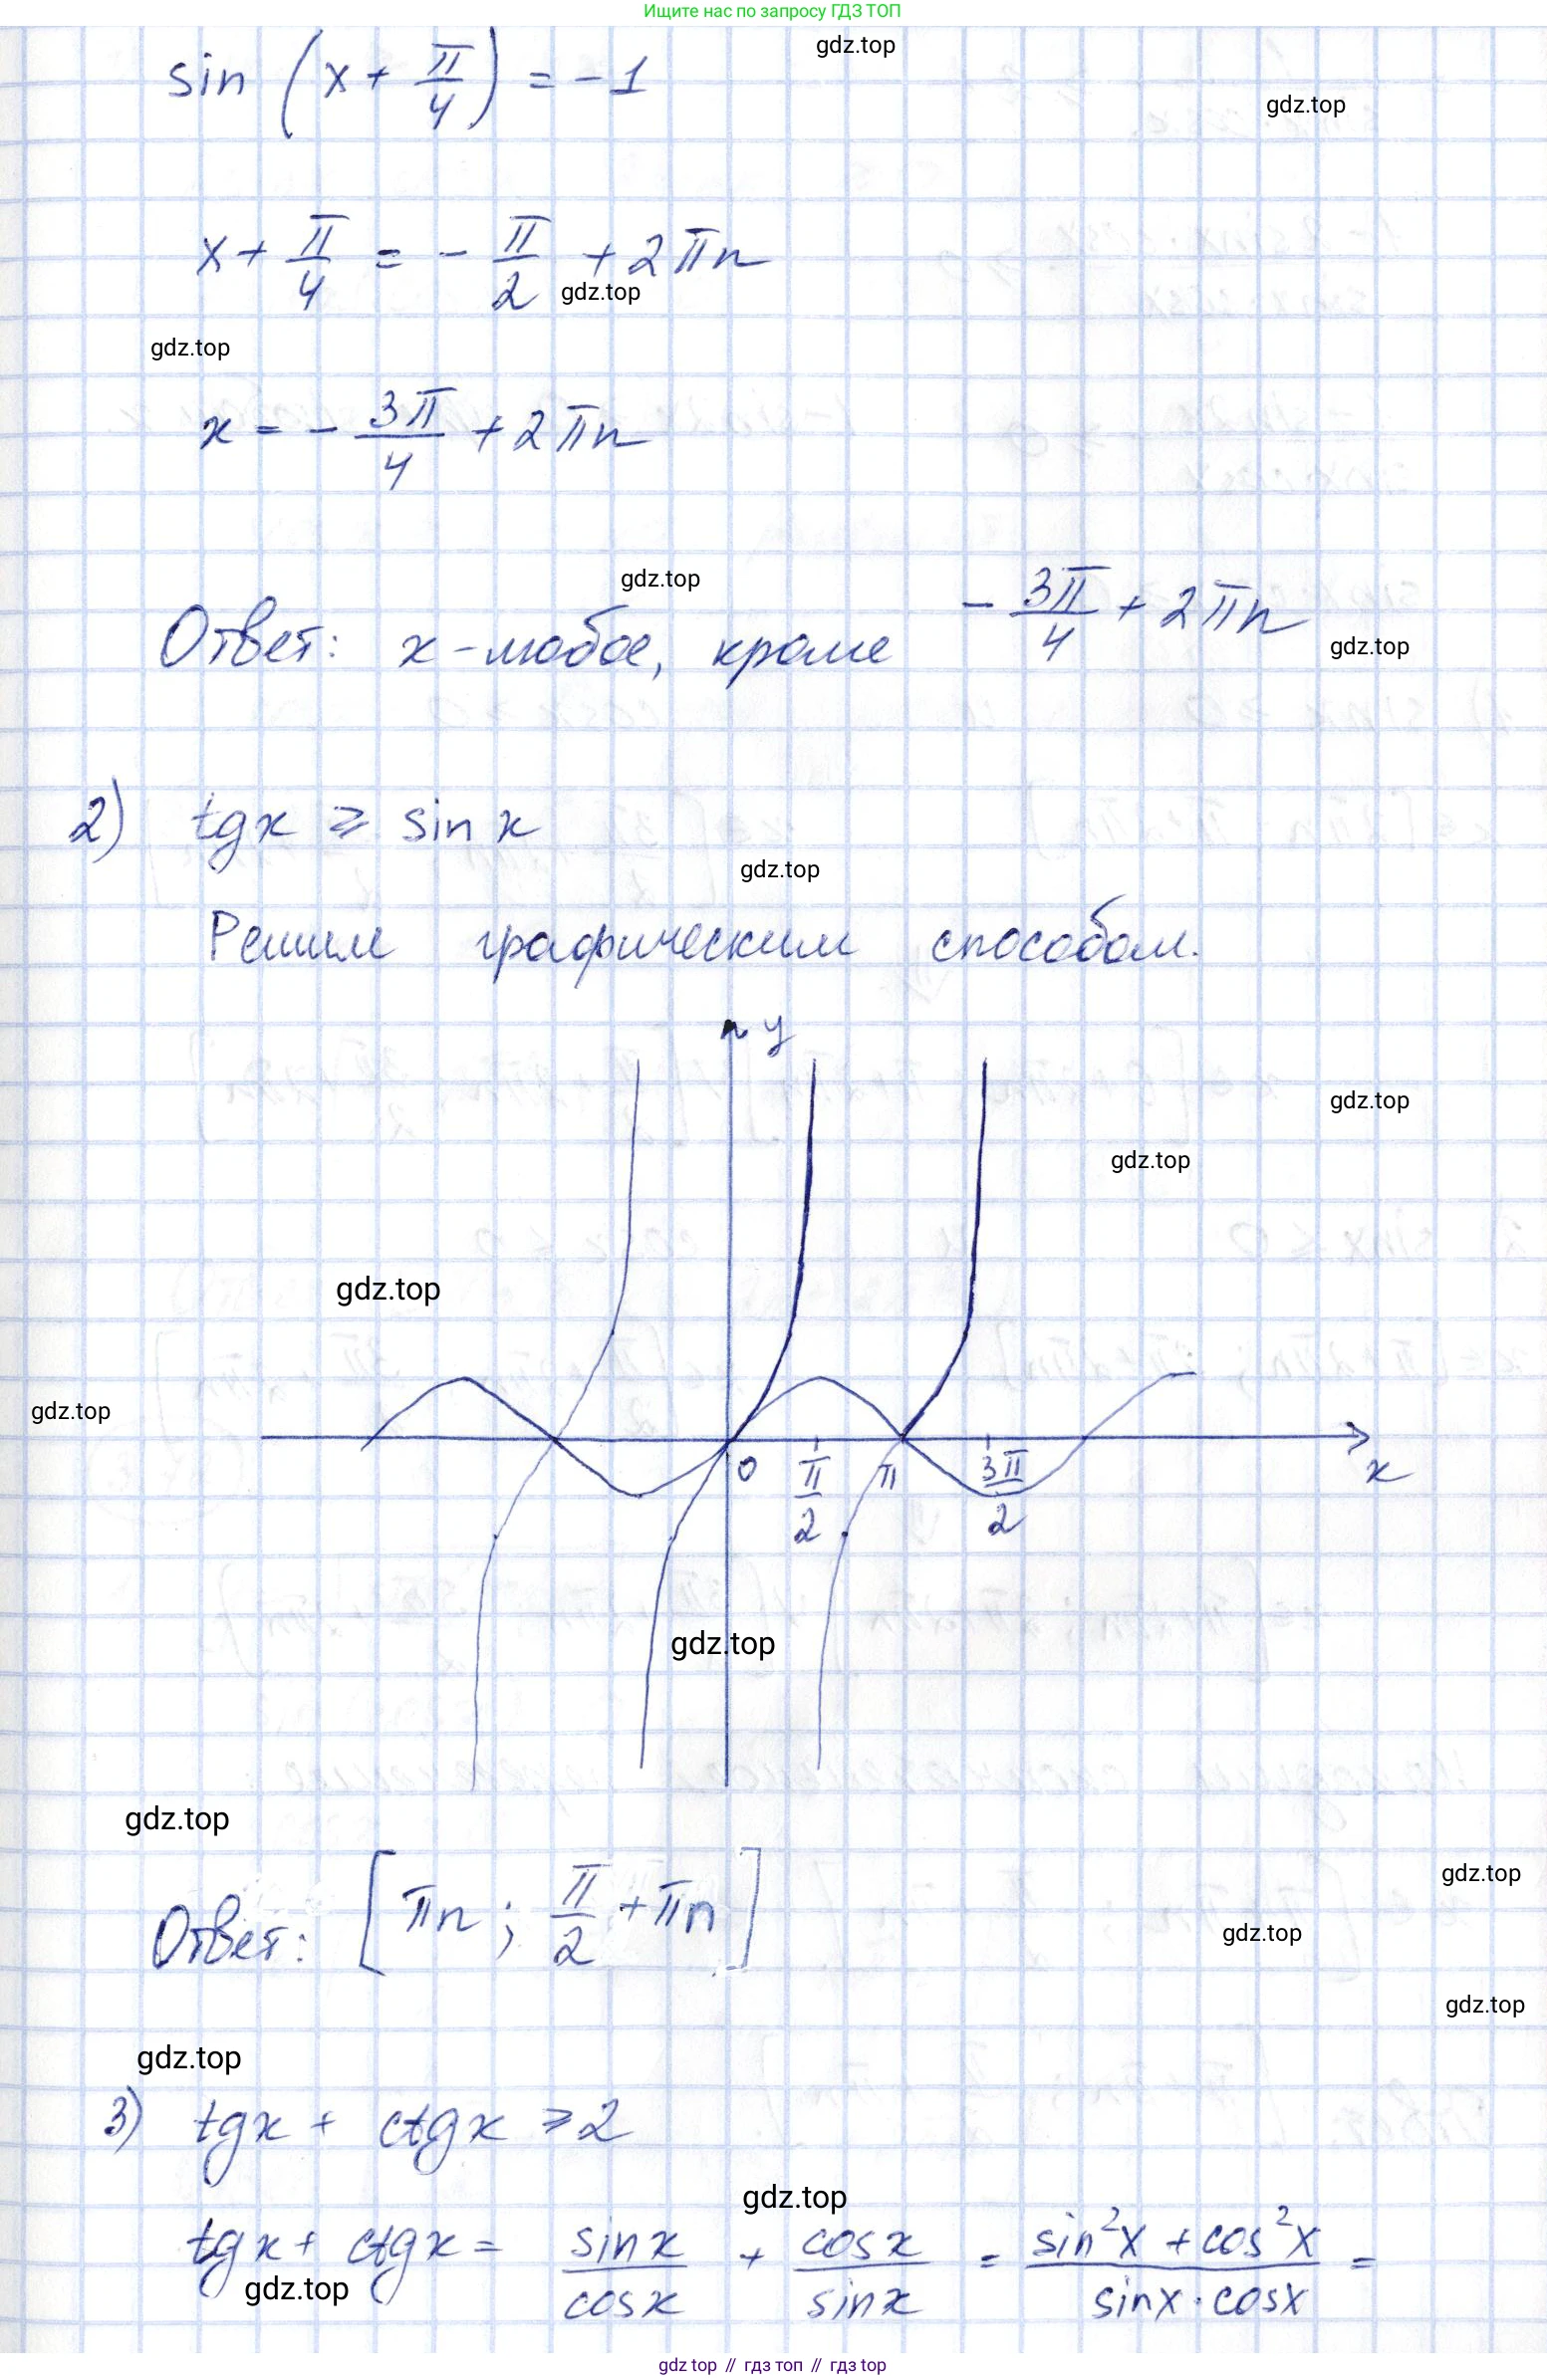 Ищите нас по запросу ГДЗ ТОП
gdz.top
sin (x + π/4) = -1
gdz.top
x + π/4 = - π/2 + 2πn
gdz.top
gdz.top
x = - 3π/4 + 2πn
gdz.top
Ответ: x - любое, кроме - 3π/4 + 2πn
gdz.top
2) tgx ⩾ sin x
gdz.top
Решим графическим способом.
y
gdz.top
gdz.top
gdz.top
gdz.top
0 π/2 π 3π/2 x
gdz.top
gdz.top
gdz.top
Ответ: [πn ; π/2 + πn]
gdz.top
gdz.top
gdz.top
3) tgx + ctgx ⩾ 2
gdz.top
tgx + ctgx = sinx/cosx + cosx/sinx = sin²x + cos²x/sinx · cosx =
gdz.top
gdz top // гдз топ // гдз top